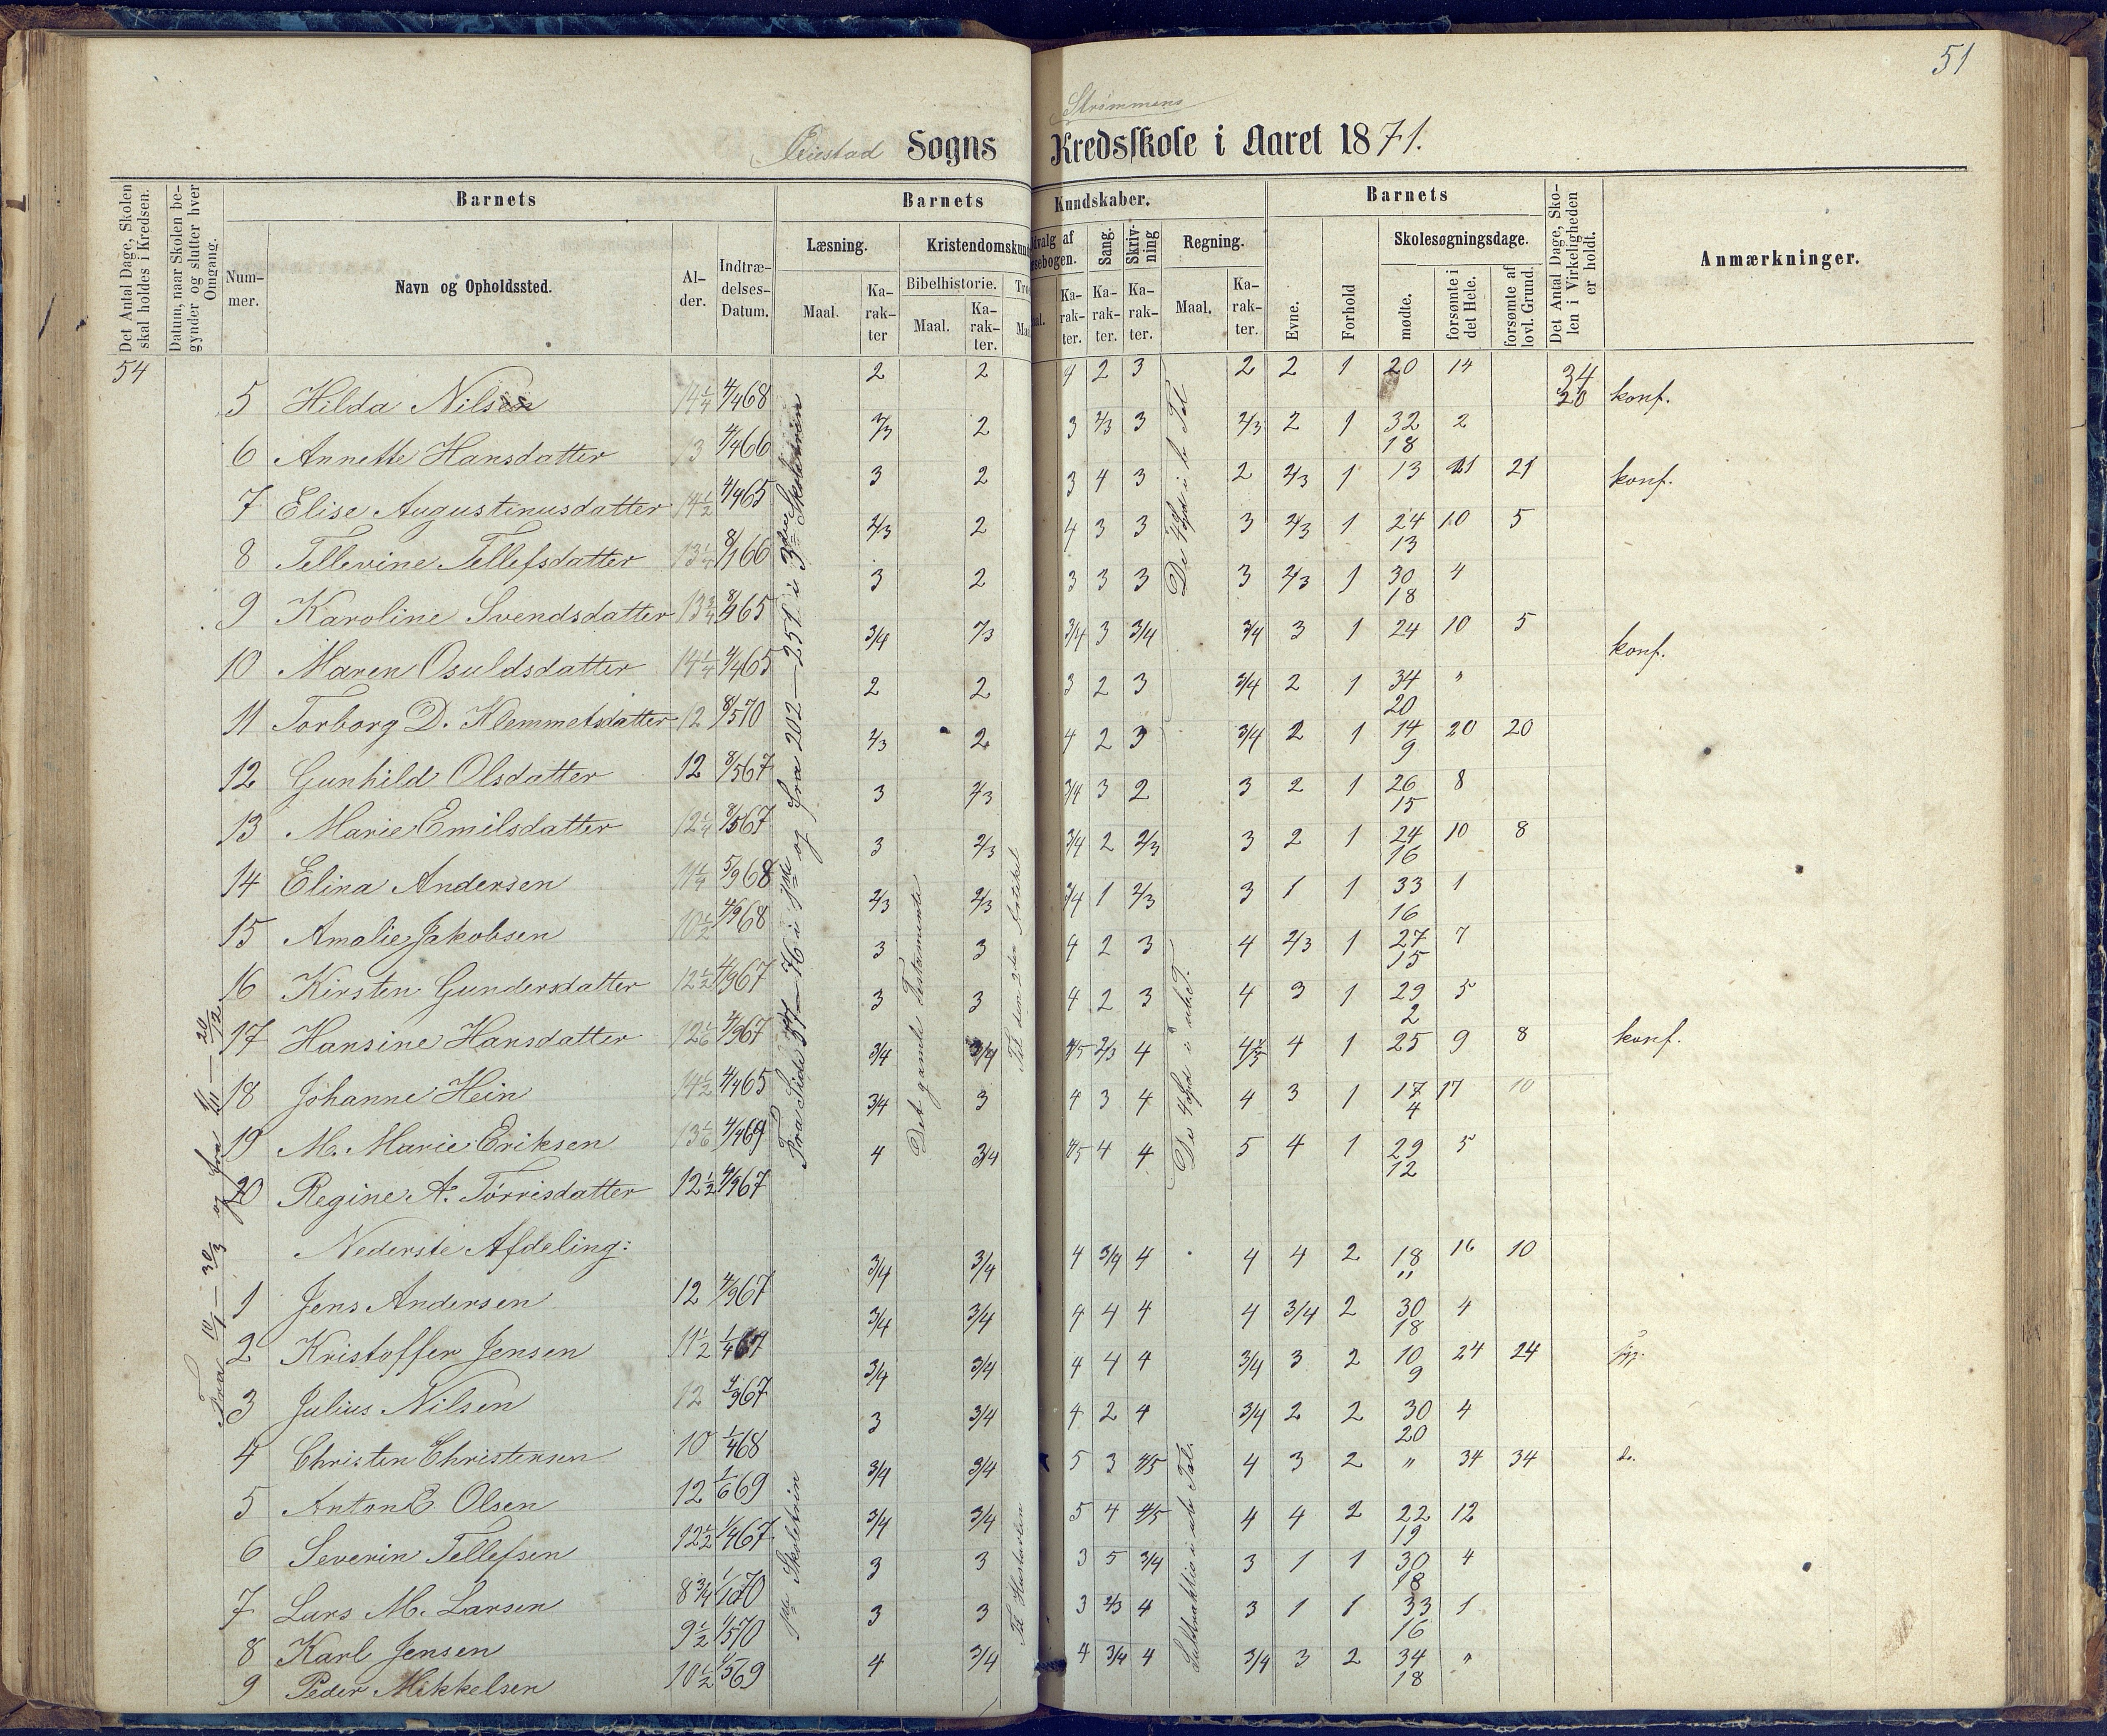 51
Strømmens
Øiestad Sogns Kredsskole i Aaret 1871.
Det Antal Dage, Skolen skal holdes i Kredsen.
Datum, naar Skolen begynder og slutter hver Omgang.
Barnets
Nummer.
Navn og Opholdssted.
Alder.
Indtrædelses-Datum.
Barnets Kundskaber.
Læsning.
Maal.
Karakter
Kristendomskun
Bibelhistorie.
Maal.
Karakter.
Tro
Maal
dvalg af
sebogen.
al.
Karakter.
Sang.
Karakter.
Skrivning
Karakter.
Regning.
Maal.
Karakter.
Barnets
Evne.
Forhold
Skolesøgningsdage.
mødte.
forsømte i det Hele.
forsømte af lovl. Grund.
Det Antal Dage, Skolen i Virkeligheden er holdt.
Anmærkninger.
54
5 Hilda Nilsen 14 1/4 4/4 68 2 2 4 2 3 2 2 1 20 14 34 20 konf.
6 Annette Hansdatter 13 4/4 66 2/3 2 3 2/3 3 2/3 2 1 32 18 2
7 Elise Augustinusdatter 14 1/2 4/4 65 3 2 3 4 3 2 2/3 1 13 21 21 konf.
8 Tellevine Tellefsdatter 13 1/4 8/1 66 2/3 2 4 3 3 3 2/3 1 24 13 10 5
9 Karoline Svendsdatter 13 3/4 65 3 2 3 3 3 3 2/3 1 30 18 4
10 Maren Osuldsdatter 14 1/4 4/4 65 3/4 2/3 3/4 3 3/4 3/4 3 1 24 10 5 konf.
11 Torborg D. Klemmetsdatter 12 8/5 70 2 2 3 2 3 3/4 2 1 34 20 "
12 Gunhild Olsdatter 12 8/5 67 2/3 2 4 2 3 3/4 2 1 14 9 20 20
13 Marie Emilsdatter 12 1/4 8/5 67 3 2/3 3/4 3 2 3 2 1 26 15 8
14 Elina Andersen 11 1/4 5/9 68 3 2/3 3/4 2 2/3 3 2 1 24 16 10 8
15 Amalie Jakobsen 10 1/2 4/9 68 2/3 2/3 3/4 1 2/3 3 1 1 33 16 1
16 Kirsten Gundersdatter 12 1/2 4/9 67 3 3 4 2 3 4 2/3 1 27 15 7
17 Hansine Hansdatter 12 1/6 4/9 67 3 3 4 2 3 4 3 1 29 2 5
18 Johanne Hein 14 1/2 4/4 65 3/4 3/4 4/5 2/3 4 4/5 4 1 25 9 8 konf.
19 M. Marie Eriksen 13 1/6 4/4 69 3/4 3 4 3 4 4 3 1 17 4 17 10
20 Regine A. Torrisdatter 12 1/2 4/9 67 4 3/4 4/5 4 4 5 4 1 29 12 5
Nederste Afdeling:
1 Jens Andersen 12 4/9 67 3/4 3/4 4 3/4 4 4 4 2 18 " 16 10
2 Kristoffer Jensen 11 1/2 1/4 67 3/4 3/4 4 4 4 4 3/4 2 30 18 4
3 Julius Nilsen 12 4/9 67 3/4 3/4 4 4 4 3/4 3 2 10 9 24 24
4 Christen Christensen 10 1/4 68 3 3/4 4 2 4 3/4 2 2 30 20 4
5 Anton E. Olsen 12 1/6 69 3/4 3/4 5 3 4/5 4 3 2 " 34 34 do.
6 Severin Tellefsen 12 1/2 1/4 67 3/4 3/4 5 4 4/5 4 4 2 22 19 12
7 Lars M. Larsen 8 3/4 1/1 70 3 3 3 5 3/4 3 1 1 30 18 4
8 Karl Jensen 9 1/2 1/5 70 3 3 3 2/3 4 3 1 1 33 16 1
9 Peder Mikkelsen 10 1/2 1/5 69 4 3/4 4 3/4 4 3/4 3 2 34 18 "
Fra 10/1 – 30/3 og fra – 20/12
Fra Side 57–76 i og fra 202–251 i 3die Skoletrin
1ste Skoletrin
Det gamle Testamente
Til den 2den Artikel
Til Hustavlen
De 4 Spd. i be. Tal
De 4 Spd. i ube. T.
Subtraktion i ube. Tal.